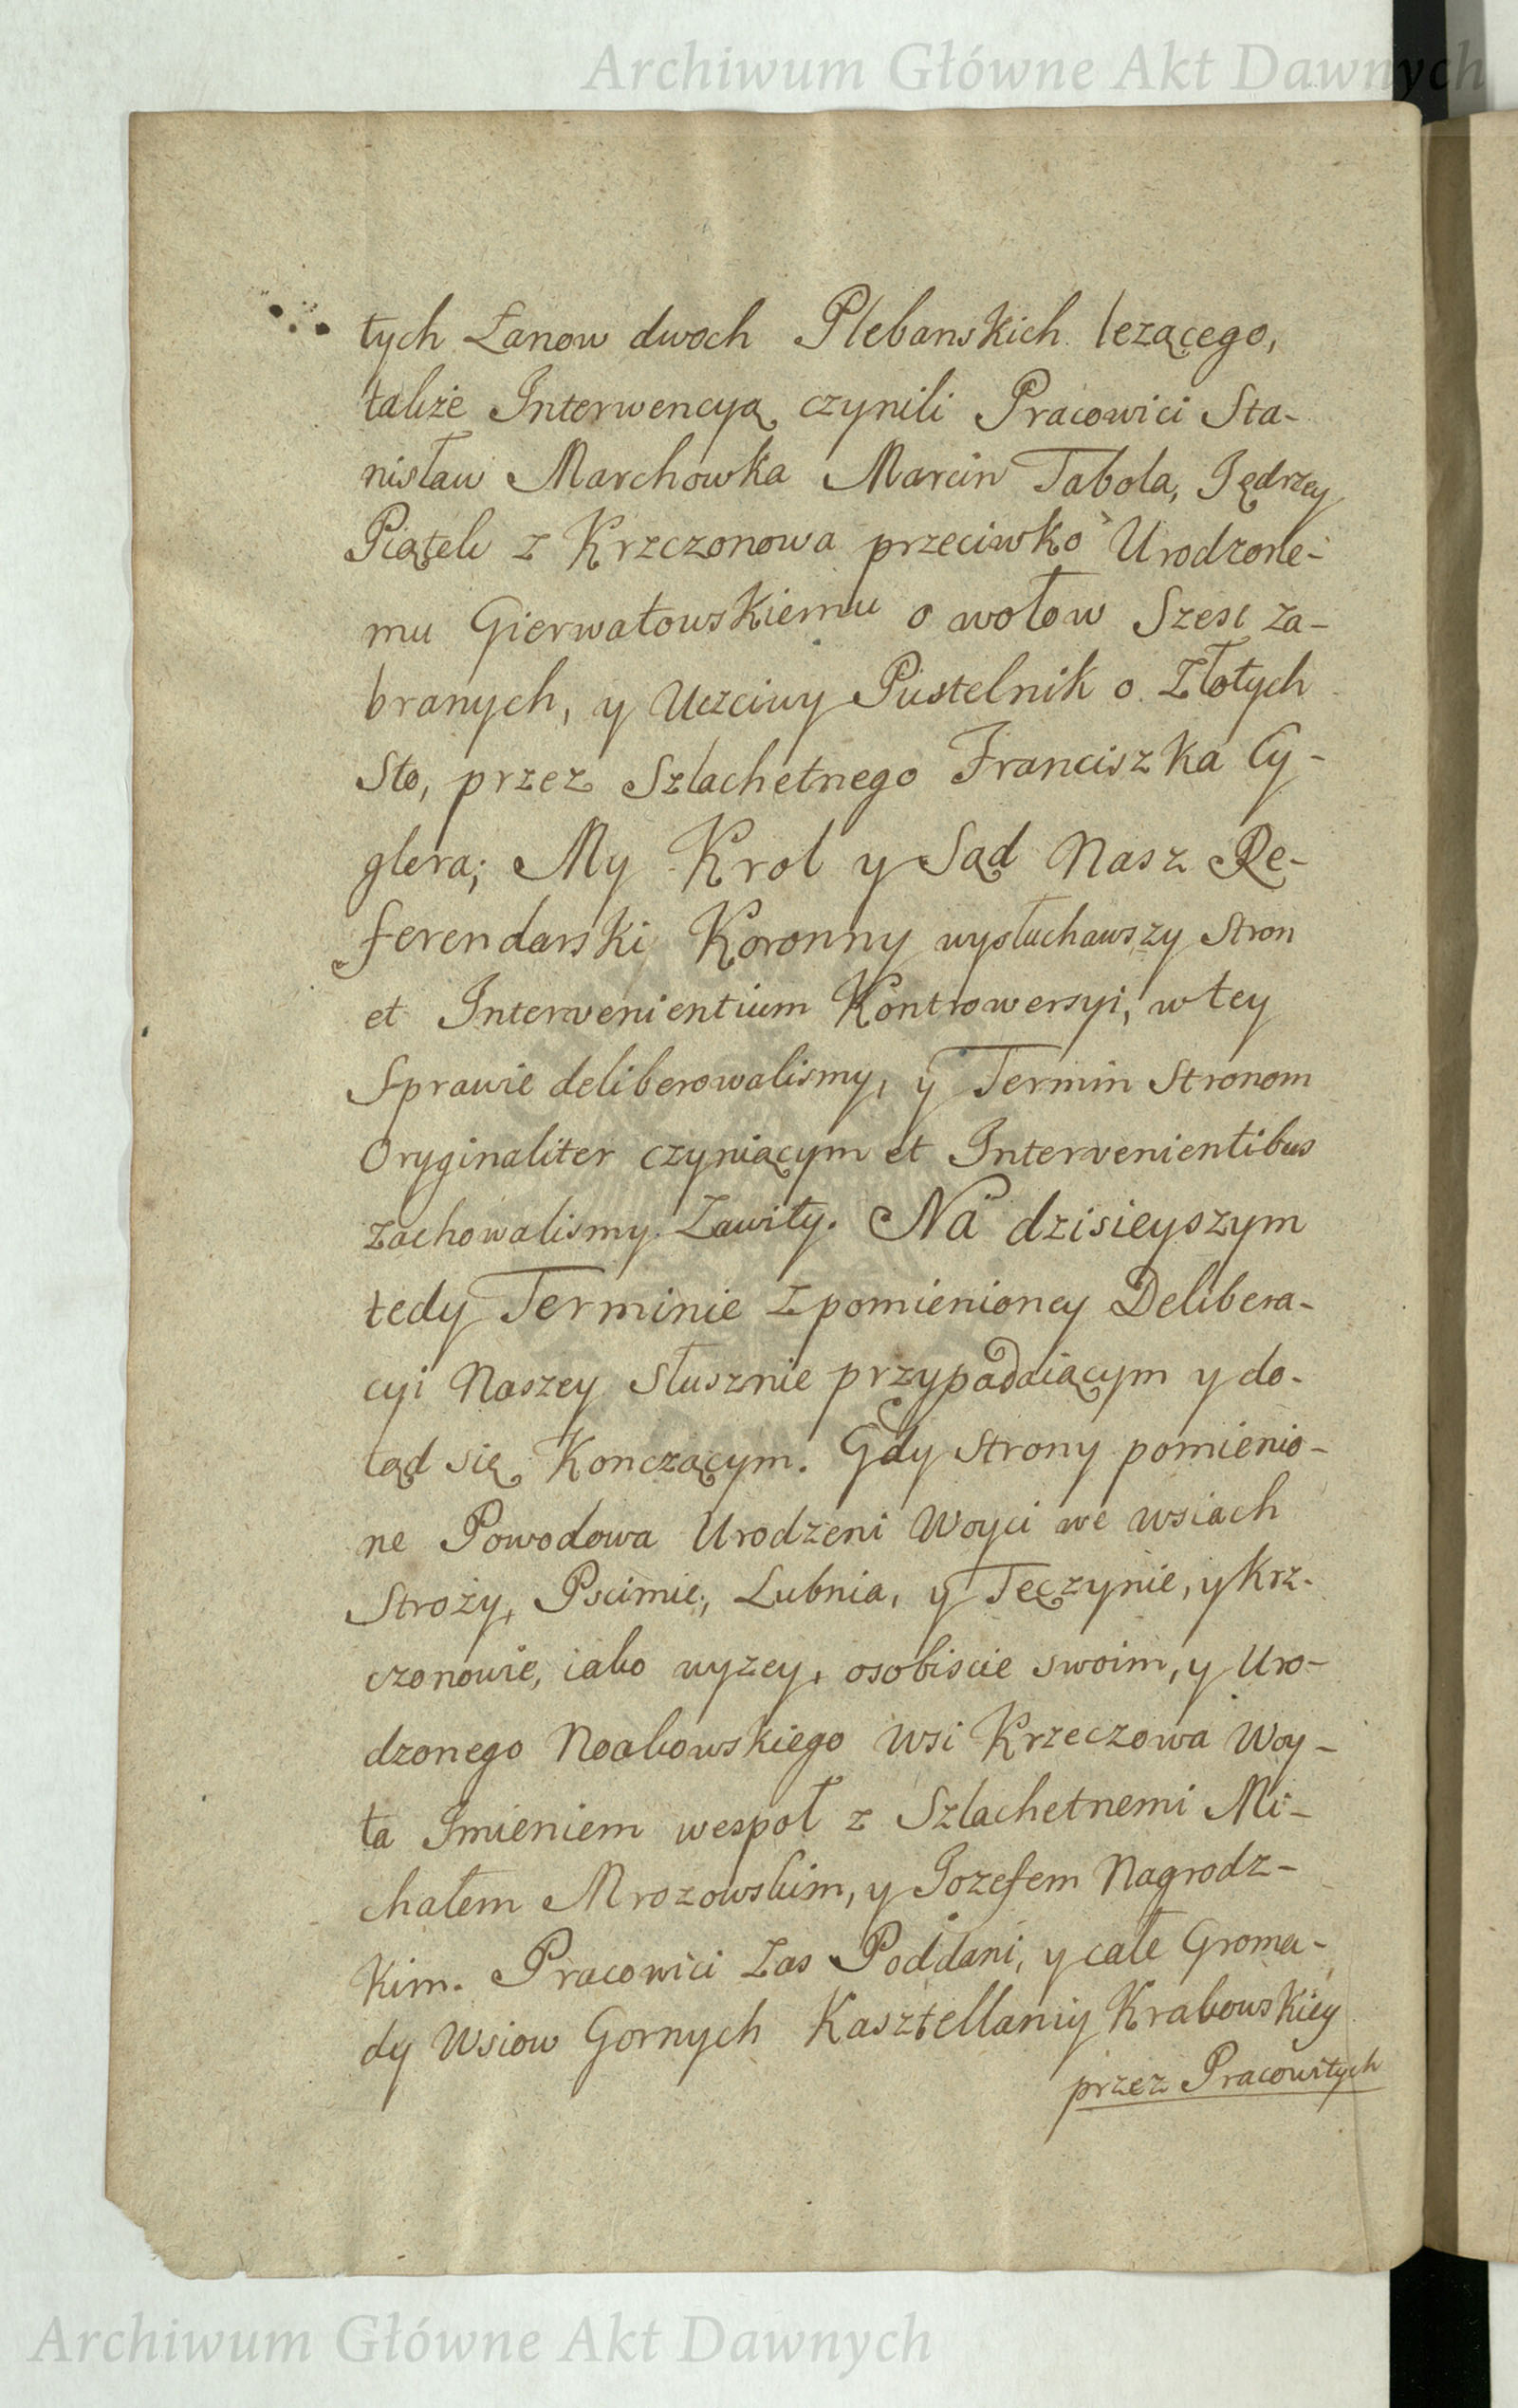 Archiwum Główne Akt Dawnych
tych Łanow dwoch Plebanskich lezącego,
także Interwencyą czynili Pracowici Sta-
nisław Marchowka Marcin Tabola, Jędrzey
Piątek z Krzczonowa przeciwko Urodzone-
mu Gierwatowskiemu o wołow Szesc za-
branych, y Uczciwy Pustelnik o Złotych
Sto, przez Szlachetnego Franciszka Cy-
glera; My Krol y Sąd Nasz Re-
ferendarski Koronny wysłuchawszy Stron
et Intervenientium Kontrowersyi, w tey
Sprawie deliberowalismy, y Termin Stronom
Oryginaliter czyniącym et Intervenientibus
zachowalismy Zawity. Na dzisieyszym
tedy Terminie z pomienioney Delibera-
cyi Naszey słusznie przypadaiącym y do-
tąd się Konczącym. Gdy Strony pomienio-
ne Powodowa Urodzeni Woyci we wsiach
Stroży, Pscimie, Lubnia, y Tęczynie, y Krz-
czonowie, iako wyzey, osobiscie swoim, y Uro-
dzonego Noakowskiego wsi Krzeczowa Woy-
ta Imieniem wespoł z Szlachetnemi Mi-
chałem Mrozowskim, y Jozefem Nagrodz-
kim. Pracowici Zas Poddani, y całe Groma-
dy Wsiow Gornych Kasztellaniy Krakowskiey
przez Pracowitych
Archiwum Główne Akt Dawnych